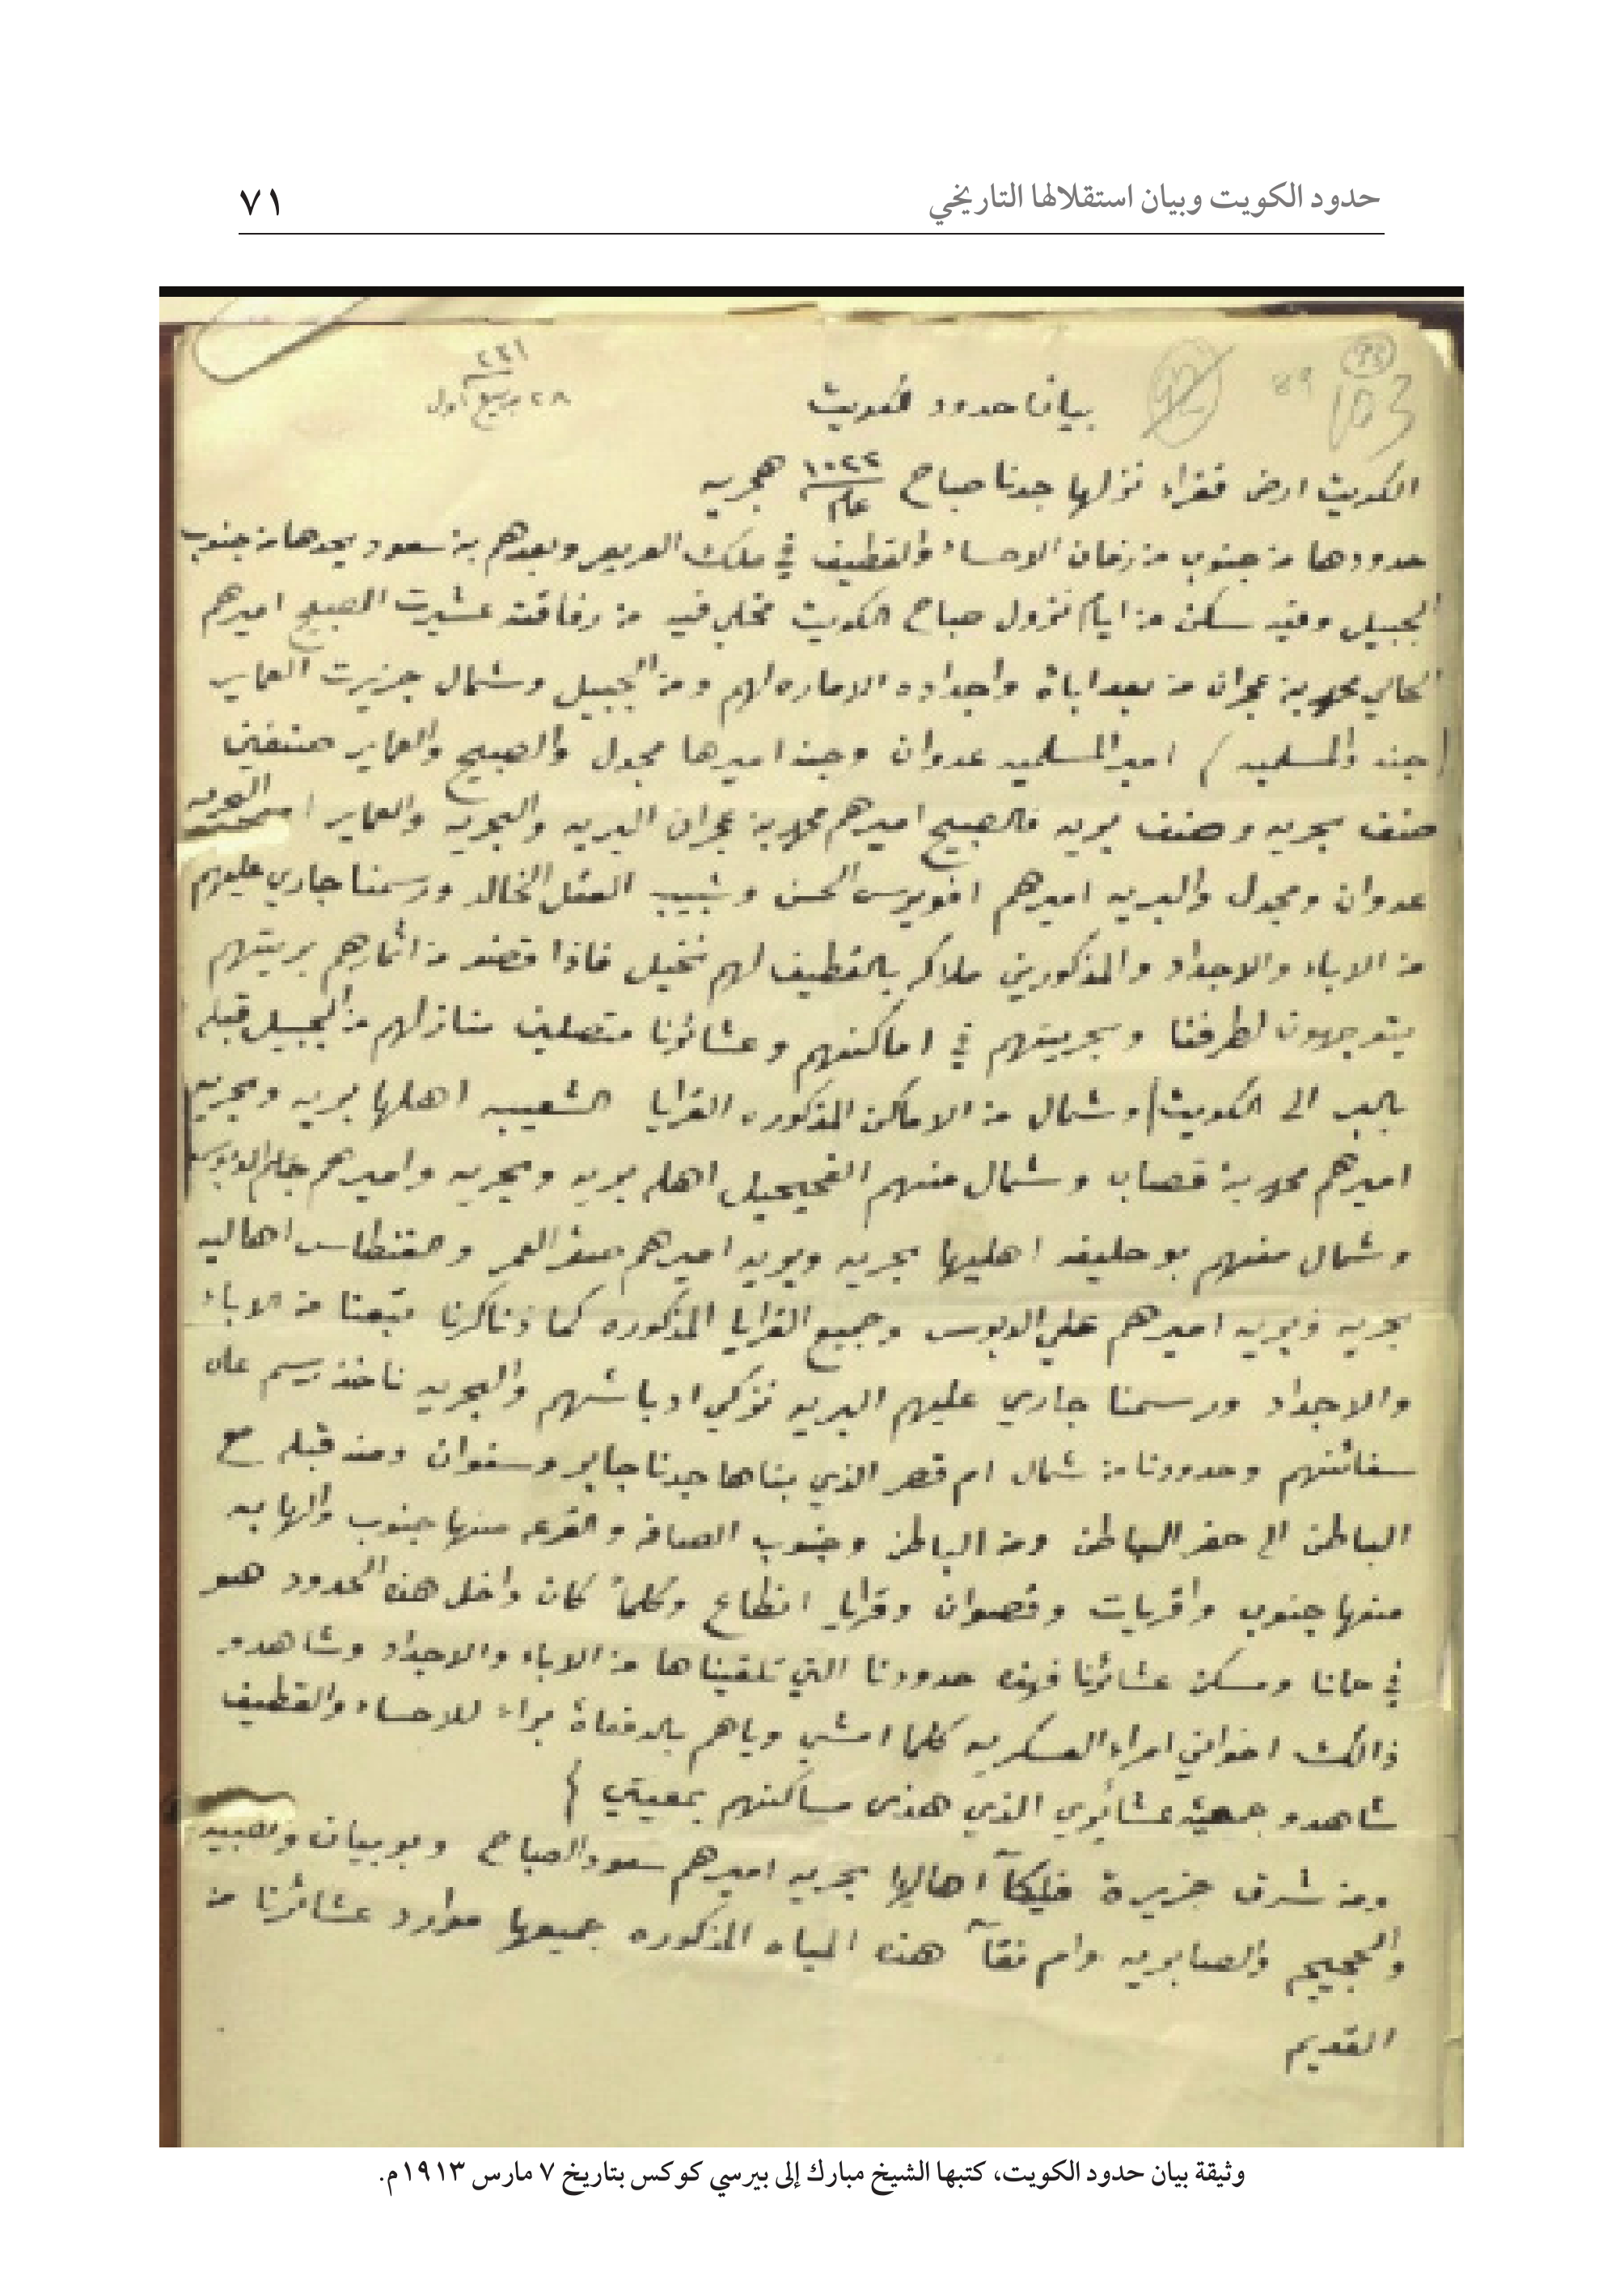 حدود الكويت وبيان استقلالها التاريخي
٧١
93
103
89
٢٨ ربيع اول
بيان حدود الكويت
الكويت ارض قفراء نزلها جدنا صباح عام ١٠٢٢ هجريه
حدودها من جنوب من زمان الاحساء والقطيف في ملك العريعر وبعدهم بن سعود يحدها من جنوب
الجبيل وفيه سكن من ايام نزول صباح الكويت مخلي فيه من رفاقته عشيرت الصبيح اميرهم
الحالي محمد بن عمران من بعد اباه واجداده الاماره لهم ومن الجبيل وشمال جزيرت العماير
(جنه والمسلميه) امير المسلميه عدوان وجنه اميرها مجدل والصبيح والعماير صنفين
صنف بحريه وصنف بريه فالصبيح اميرهم محمد بن عمران البريه والبحريه والعماير البحريه
عدوان ومجدل والبريه اميرهم الحسن وشبيب العقل الخالد ورسمنا جاري عليهم
من الاباء والاجداد والمذكورين ملاكه بالقطيف لهم نخيل فاذا قضو من اثمارهم بريتهم
يتوجهون لطرفنا وبحريتهم في اماكنهم وعشائرنا متصلين منازلهم من الجبيل قبله
بالبر الى الكويت / وشمال من الاماكن المذكوره القرايا الشعيبه اهلها بريه وبحريه
اميرهم محمد بن قصاب وشمال منهم الفحيحيل اهله بريه وبحريه واميرهم الدبوس
وشمال منهم بو حليفه اهليها بحريه وبريه اميرهم صقر العمر والفنطاس اهاليه
بحريه وبريه اميرهم علي الدبوس وجميع القرايا المذكوره كما ذناكرنا تبعنا من الاباء
والاجداد ورسمنا جاري عليهم البريه نزكي ادباشهم والبحريه ناخذ رسم على
سفائنهم وحدودنا من شمال ام قصر الذي بناها جدنا جابر وسفوان ومنه قبله مع
الباطن الى حفر الباطن ومن الباطن وجنوب الصافه والقرعه منها جنوب والهابه
منها جنوب واقريات وقصوان وقرايا انطاع وكلما كان داخل هذه الحدود هو
في حمانا ومسكن عشائرنا فهذه حدودنا التي تلقيناها من الاباء والاجداد وشاهدو
ذالك اخواني امراء العسكريه كلما امشي وياهم بالدفعاة براء للاحساء والقطيف
شاهدو جميع عشائري الذي هذى مساكنهم بمعيتي
ومن شرق جزيرة فليكآ اهاليها بحريه اميرهم سعود الصباح وبوبيان والصبيه
والجهيم والصابريه وام نقآ هذه المياه المذكوره جميعها موارد عشائرنا من
القديم
وثيقة بيان حدود الكويت، كتبها الشيخ مبارك إلى بيرسي كوكس بتاريخ ٧ مارس ١٩١٣م.